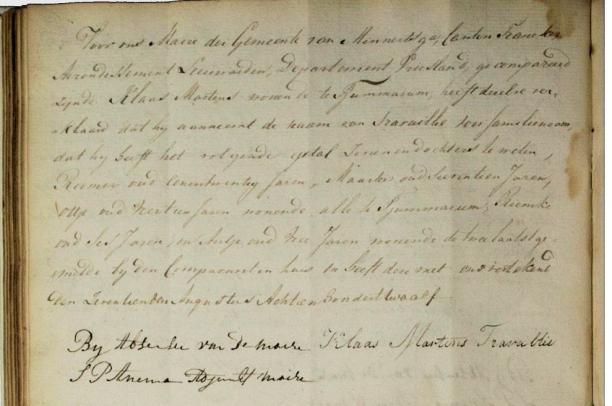 Voor ons Maire der Gemeente van Minnertsga, Canton Franeker
Arrondissement Leeuwarden, Departement Vriesland, gecompareerd
zynde Klaas Martens wonende te Tjummarum, heeft dezelve ver-
klaard dat hy aanneemt de naam van Travaillie voor familienaam,
dat hy heeft het volgende getal Zoonen en dochters te weten,
Reemer oud eenentwintig Jaren, Maarten oud zeventien Jaren,
oud veertien Jaren wonende alle te Tjummarum, Riemke
oud zes Jaren, en Antje oud twee Jaren wonende de twee laatst ge-
melde by den Comparant in huis en heeft deze met ons getekend
den zeventienden Augustus Achtien hondert twaalf
By Absentie van de maire Klaas Martens Travaillie
F P Anema Adjunct maire